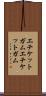 エチケット
ガムエチケ
ットガム